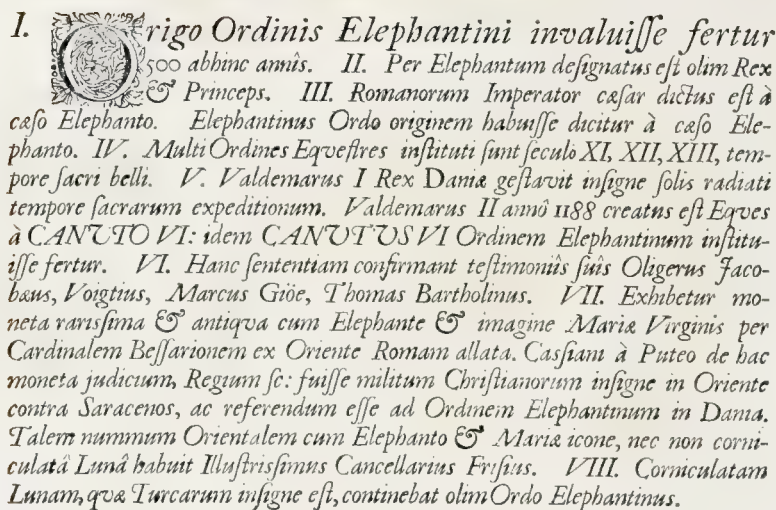 I. Origo Ordinis Elephantini invaluiſſe fertur
500 abhinc annîs. II. Per Elephantum deſignatus eſt olim Rex
& Princeps. III. Romanorum Imperator cæſar dictus eſt à
cæſo Elephanto. Elephantinus Ordo originem habuiſſe dicitur à cæſo Ele-
phanto. IV. Multi Ordines Eqveſtres inſtituti ſunt ſeculo XI, XII, XIII, tem-
pore ſacri belli. V. Valdemarus I Rex Daniæ geſtavit inſigne ſolis radiati
tempore ſacrarum expeditionum. Valdemarus II annô 1188 creatus eſt Eqves
à CANUTO VI: idem CANUTUS VI Ordinem Elephantinum inſtitu-
iſſe fertur. VI. Hanc ſententiam confirmant teſtimoniis ſuis Oligerus Jaco-
bæus, Voigtius, Marcus Giöe, Thomas Bartholinus. VII. Exhibetur mo-
neta rarisſima & antiqva cum Elephante & imagine Mariæ Virginis per
Cardinalem Beſſarionem ex Oriente Romam allata. Casſiani à Puteo de hac
moneta judicium, Regium ſc: fuiſſe militum Chriſtianorum inſigne in Oriente
contra Saracenos, ac referendum eſſe ad Ordinem Elephantinum in Dania.
Talem nummum Orientalem cum Elephanto & Mariæ icone, nec non corni-
culatâ Lunâ habuit Illuſtrisſimus Cancellarius Friſius. VIII. Corniculatam
Lunam, qvæ Turcarum inſigne eſt, continebat olim Ordo Elephantinus.